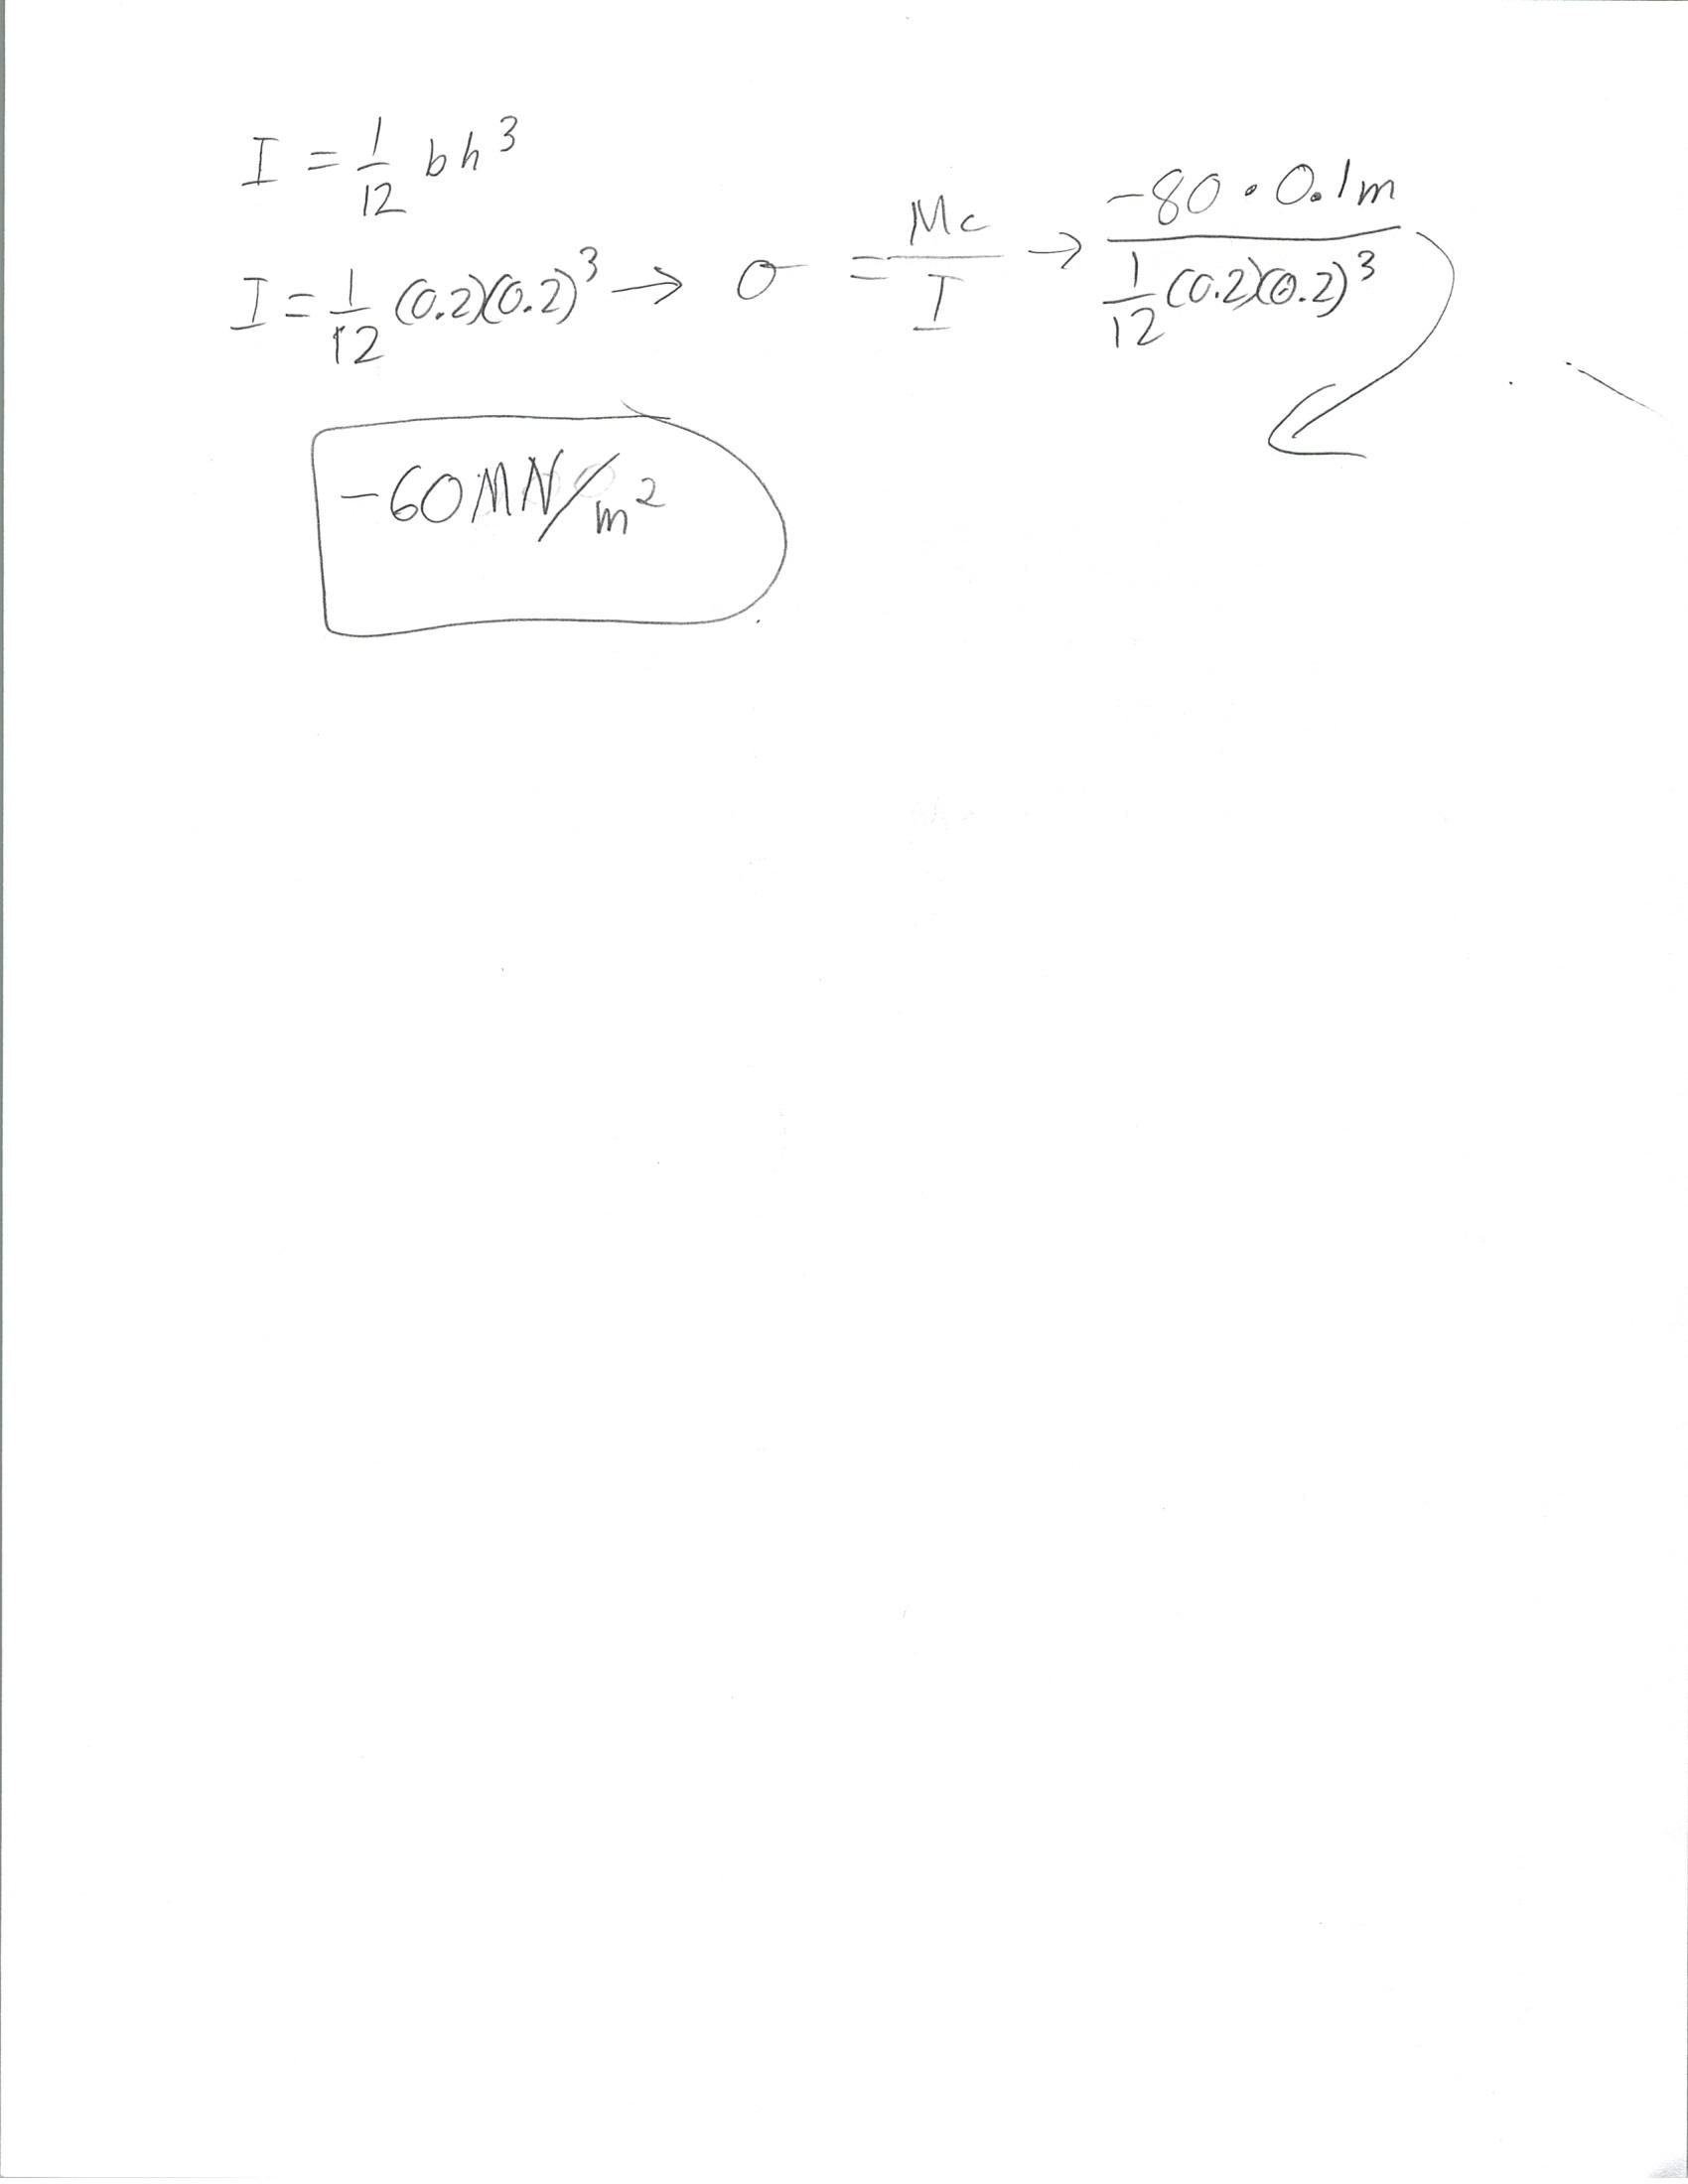 I = 1/12 bh³
I = 1/12 (0.2)(0.2)³ → σ = Mc/I → -80 · 0.1m / 1/12 (0.2)(0.2)³
-60MN/m²